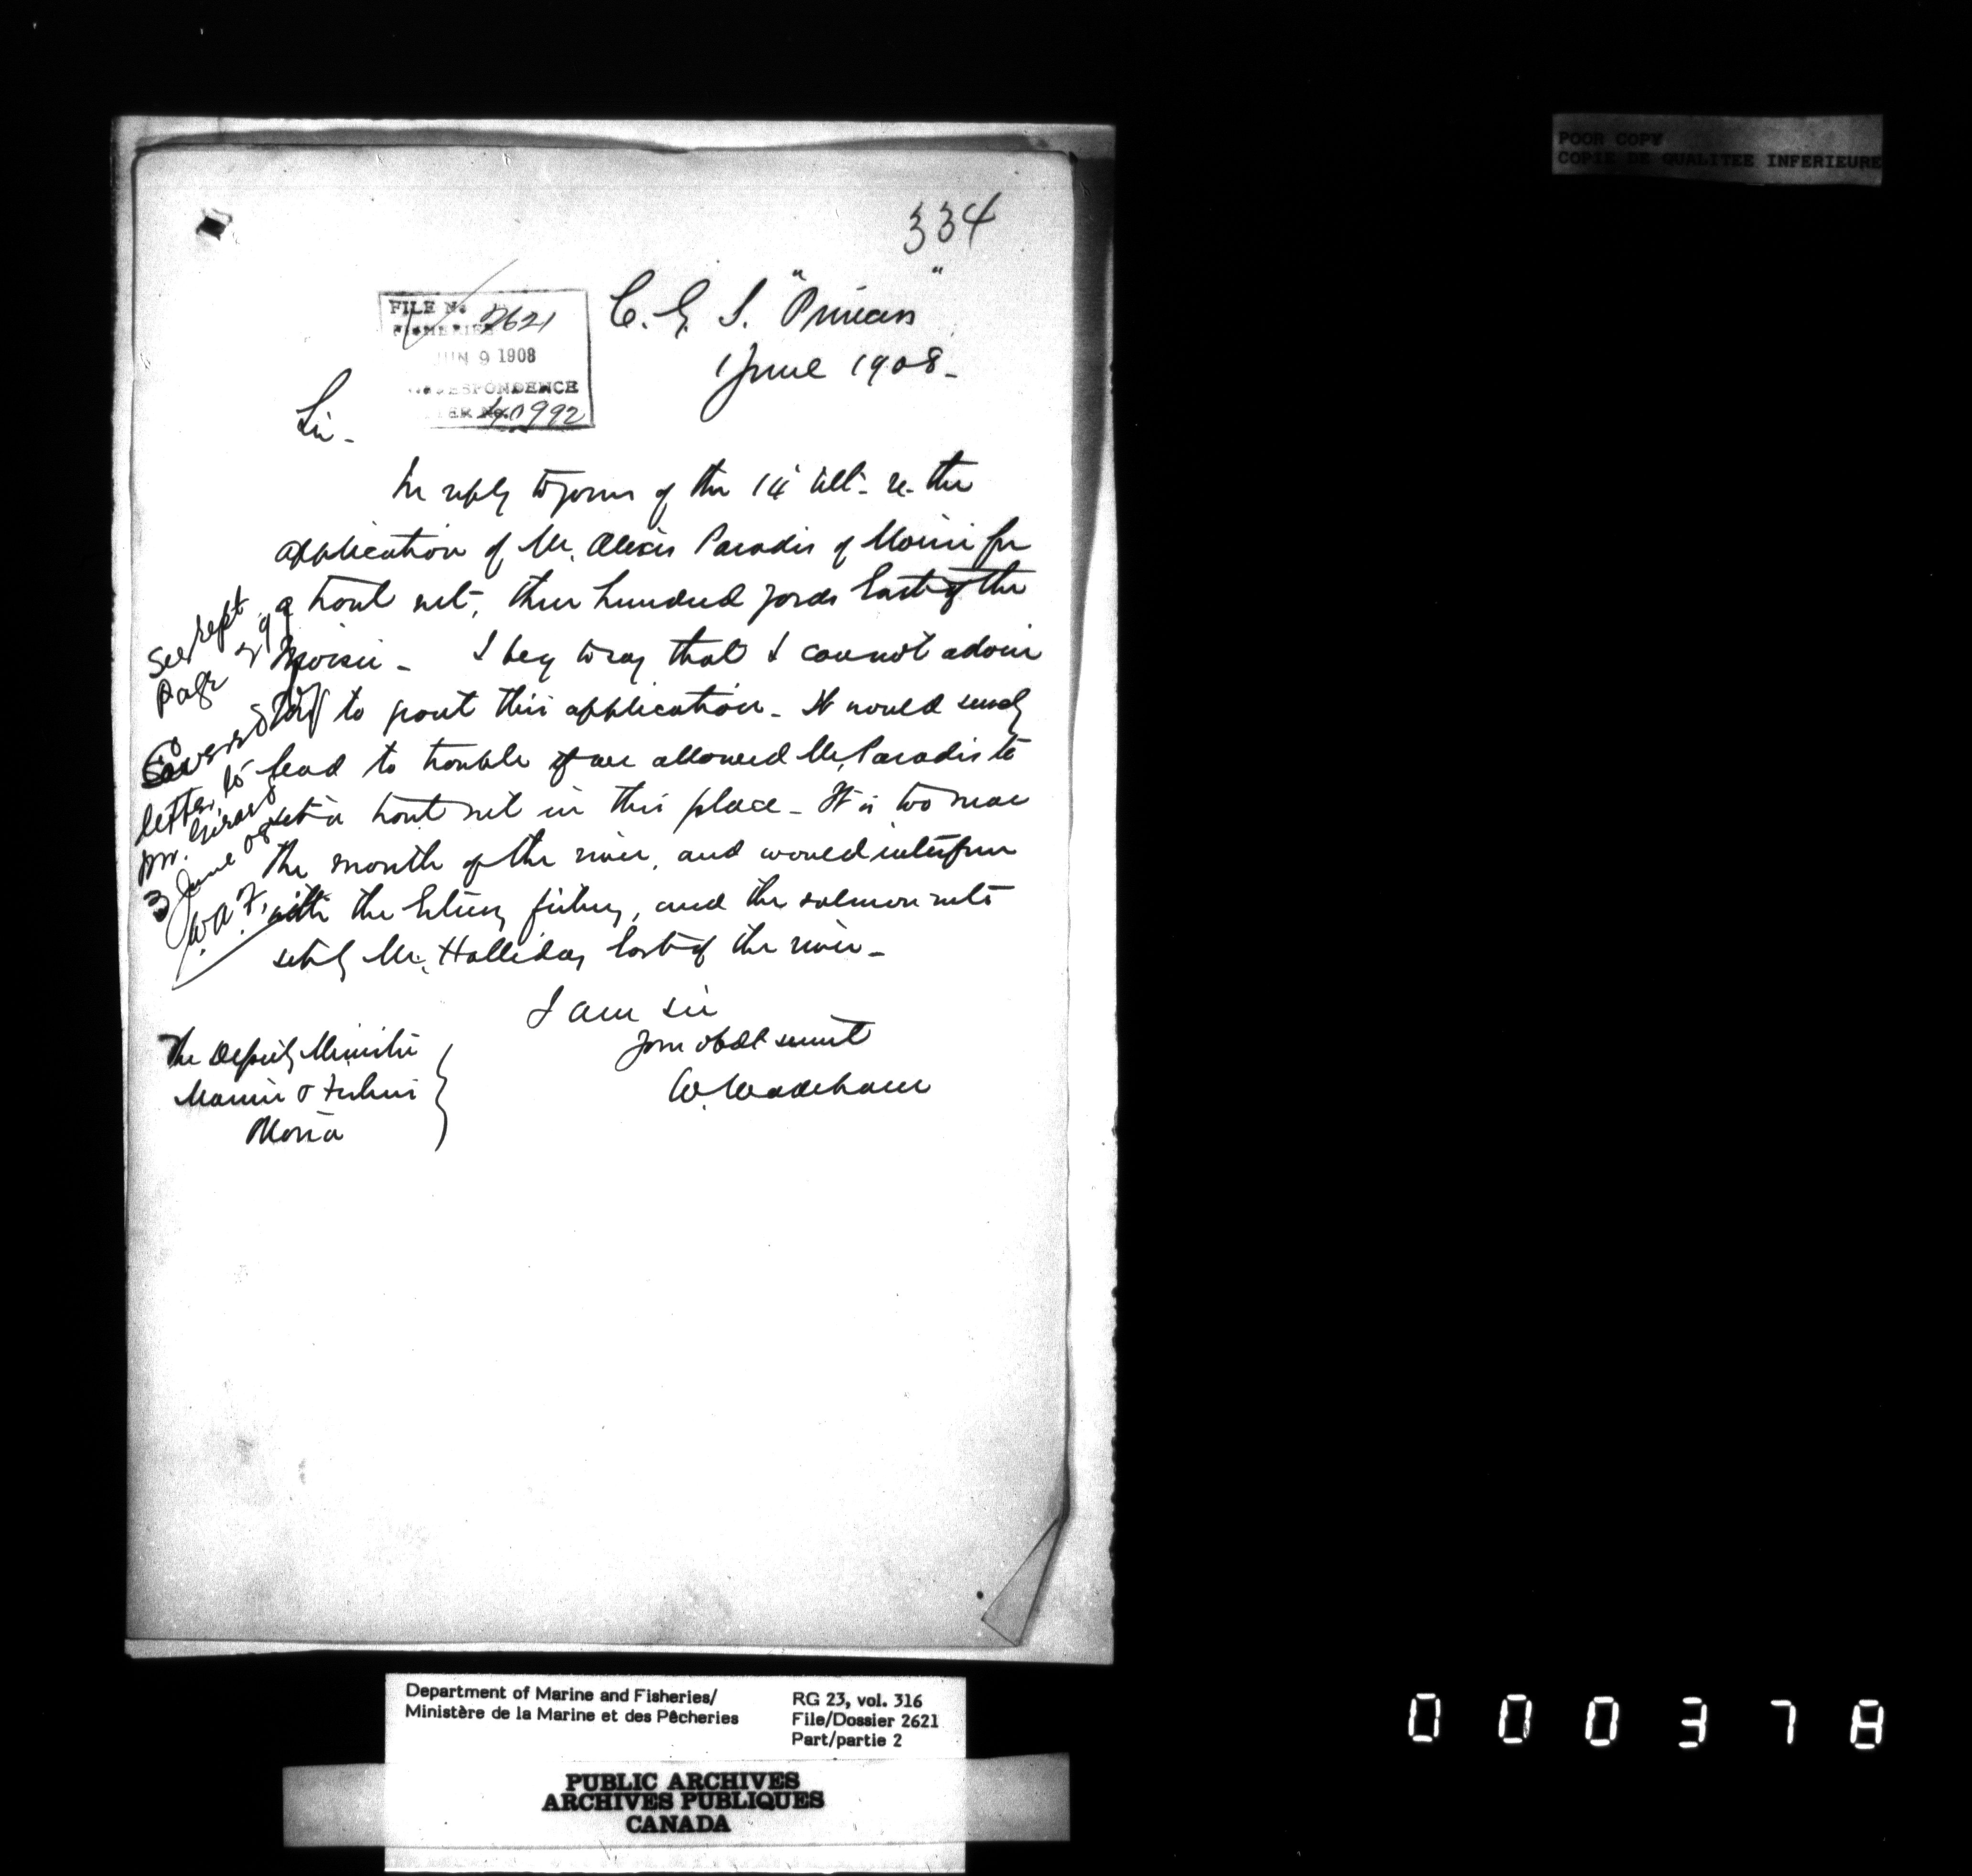 POOR COPY
COPIE DE QUALITEE INFERIEURE
334
FILE No. 2621
FISHERIES
JUN 9 1908
CORRESPONDENCE
LETTER No. 40992
C. G. S. "Princess"
1 June 1908-
Sir-
In reply to yours of the 14 ult- re- the
application of Mr. Alexis Paradis of Moisie for
a trout net, three hundred yards East of the
Moisie - I beg to say that I cannot advise
you to grant this application - It would surely
lead to trouble if we allowed Mr. Paradis to
set a trout net in this place - It is too near
the mouth of the river, and would interfere
with the Estuary fishery, and the salmon nets
set by Mr. Halliday East of the river -
I am sir
Your obdt servant
W. Wakeham
The Deputy Minister
Marine & Fisheries
Ottawa
See rept
Page
Covered by
letter to
Mr. Girard
3 June 08
W.A.F.
Department of Marine and Fisheries/
Ministère de la Marine et des Pêcheries
RG 23, vol. 316
File/Dossier 2621
Part/partie 2
PUBLIC ARCHIVES
ARCHIVES PUBLIQUES
CANADA
000378